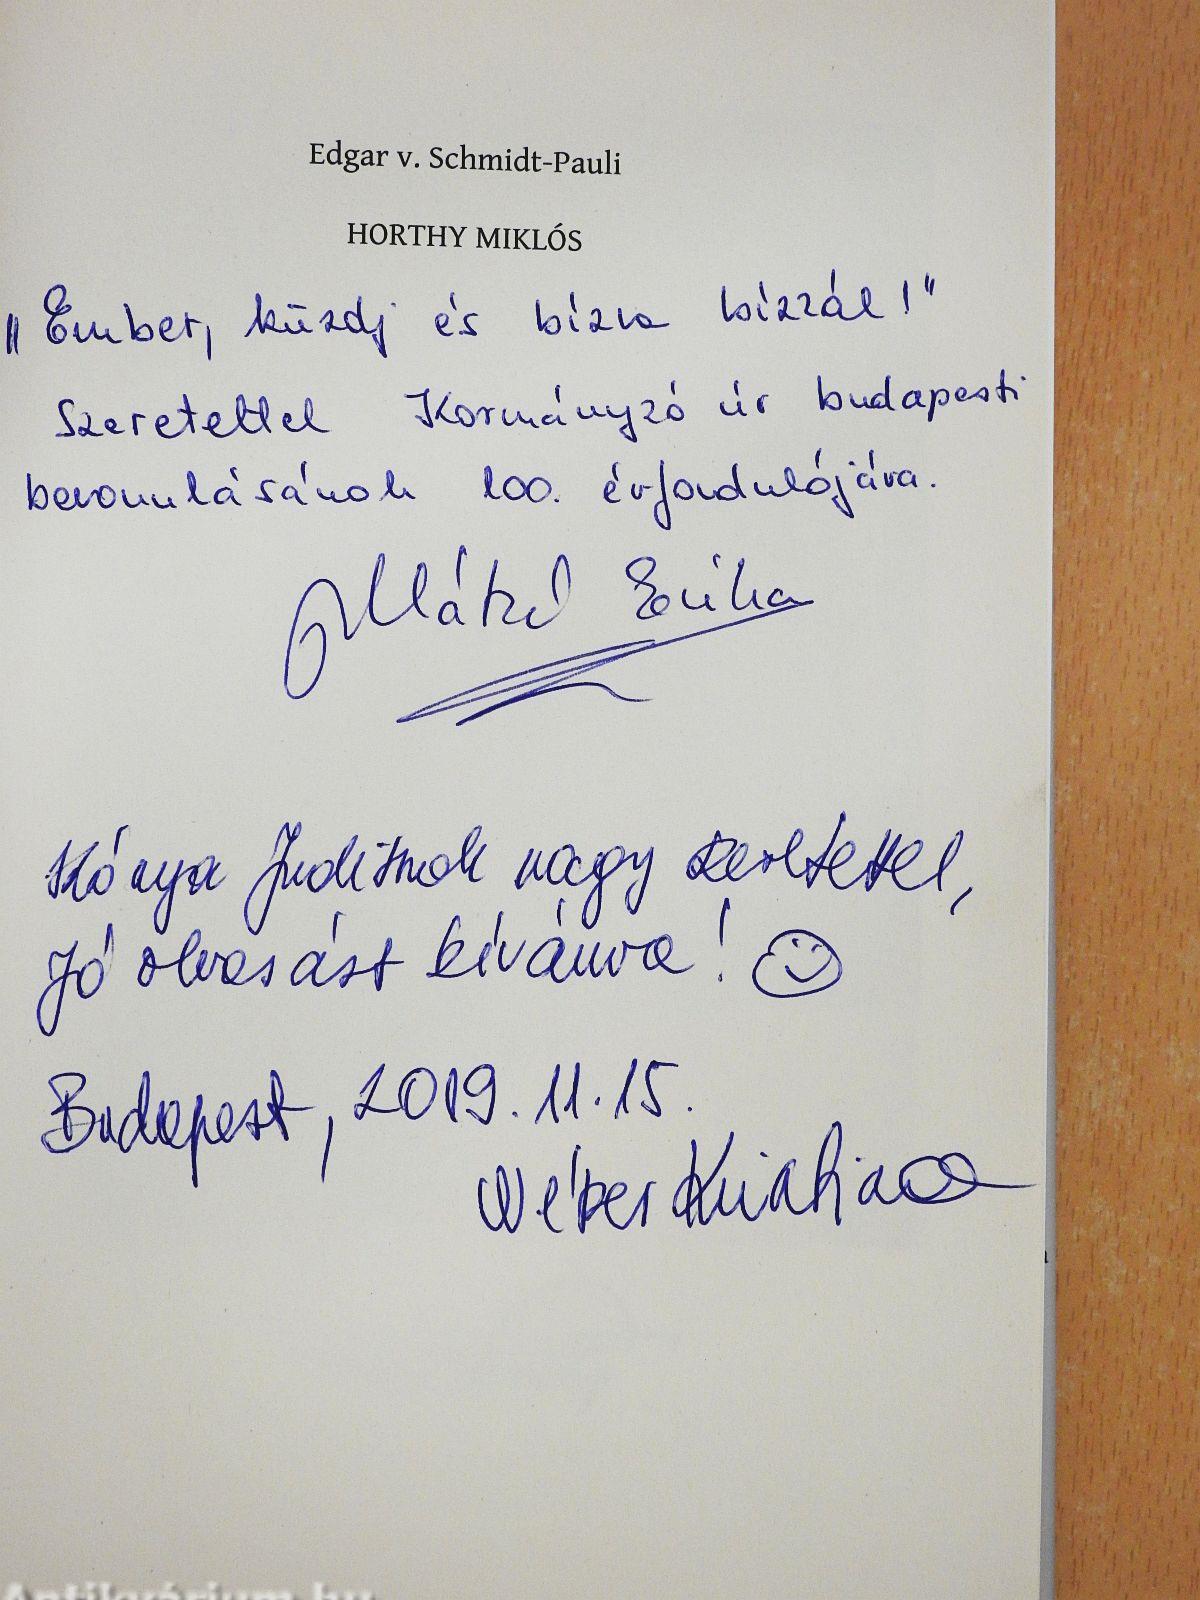 Edgar v. Schmidt-Pauli
HORTHY MIKLÓS
„Ember, küzdj és bízva bízzál!"
Szeretettel Kormányzó úr budapesti
bevonulásának 100. évfordulójára.
Erika
Kónya Juditnak nagy szeretettel,
Jó olvasást kívánva!
Budapest, 2019.11.15.
Antikvárium.hu